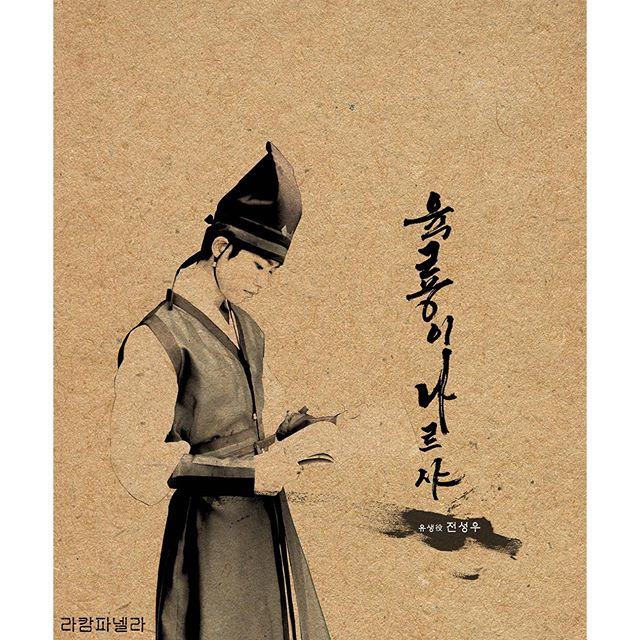 육룡이 나르샤
유생役 전성우
라캄파넬라